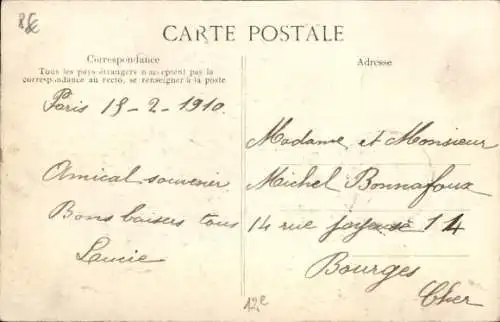 8€
CARTE POSTALE
Correspondance
Tous les pays étrangers n'acceptent pas la
correspondance au recto, se renseigner à la poste
Adresse
Paris 15-2-1910.
Amical souvenir
Bons baisers tous
Lucie
Madame et Monsieur
Michel Bonnafoux
14 rue joyeuse 14
Bourges
Cher
12€